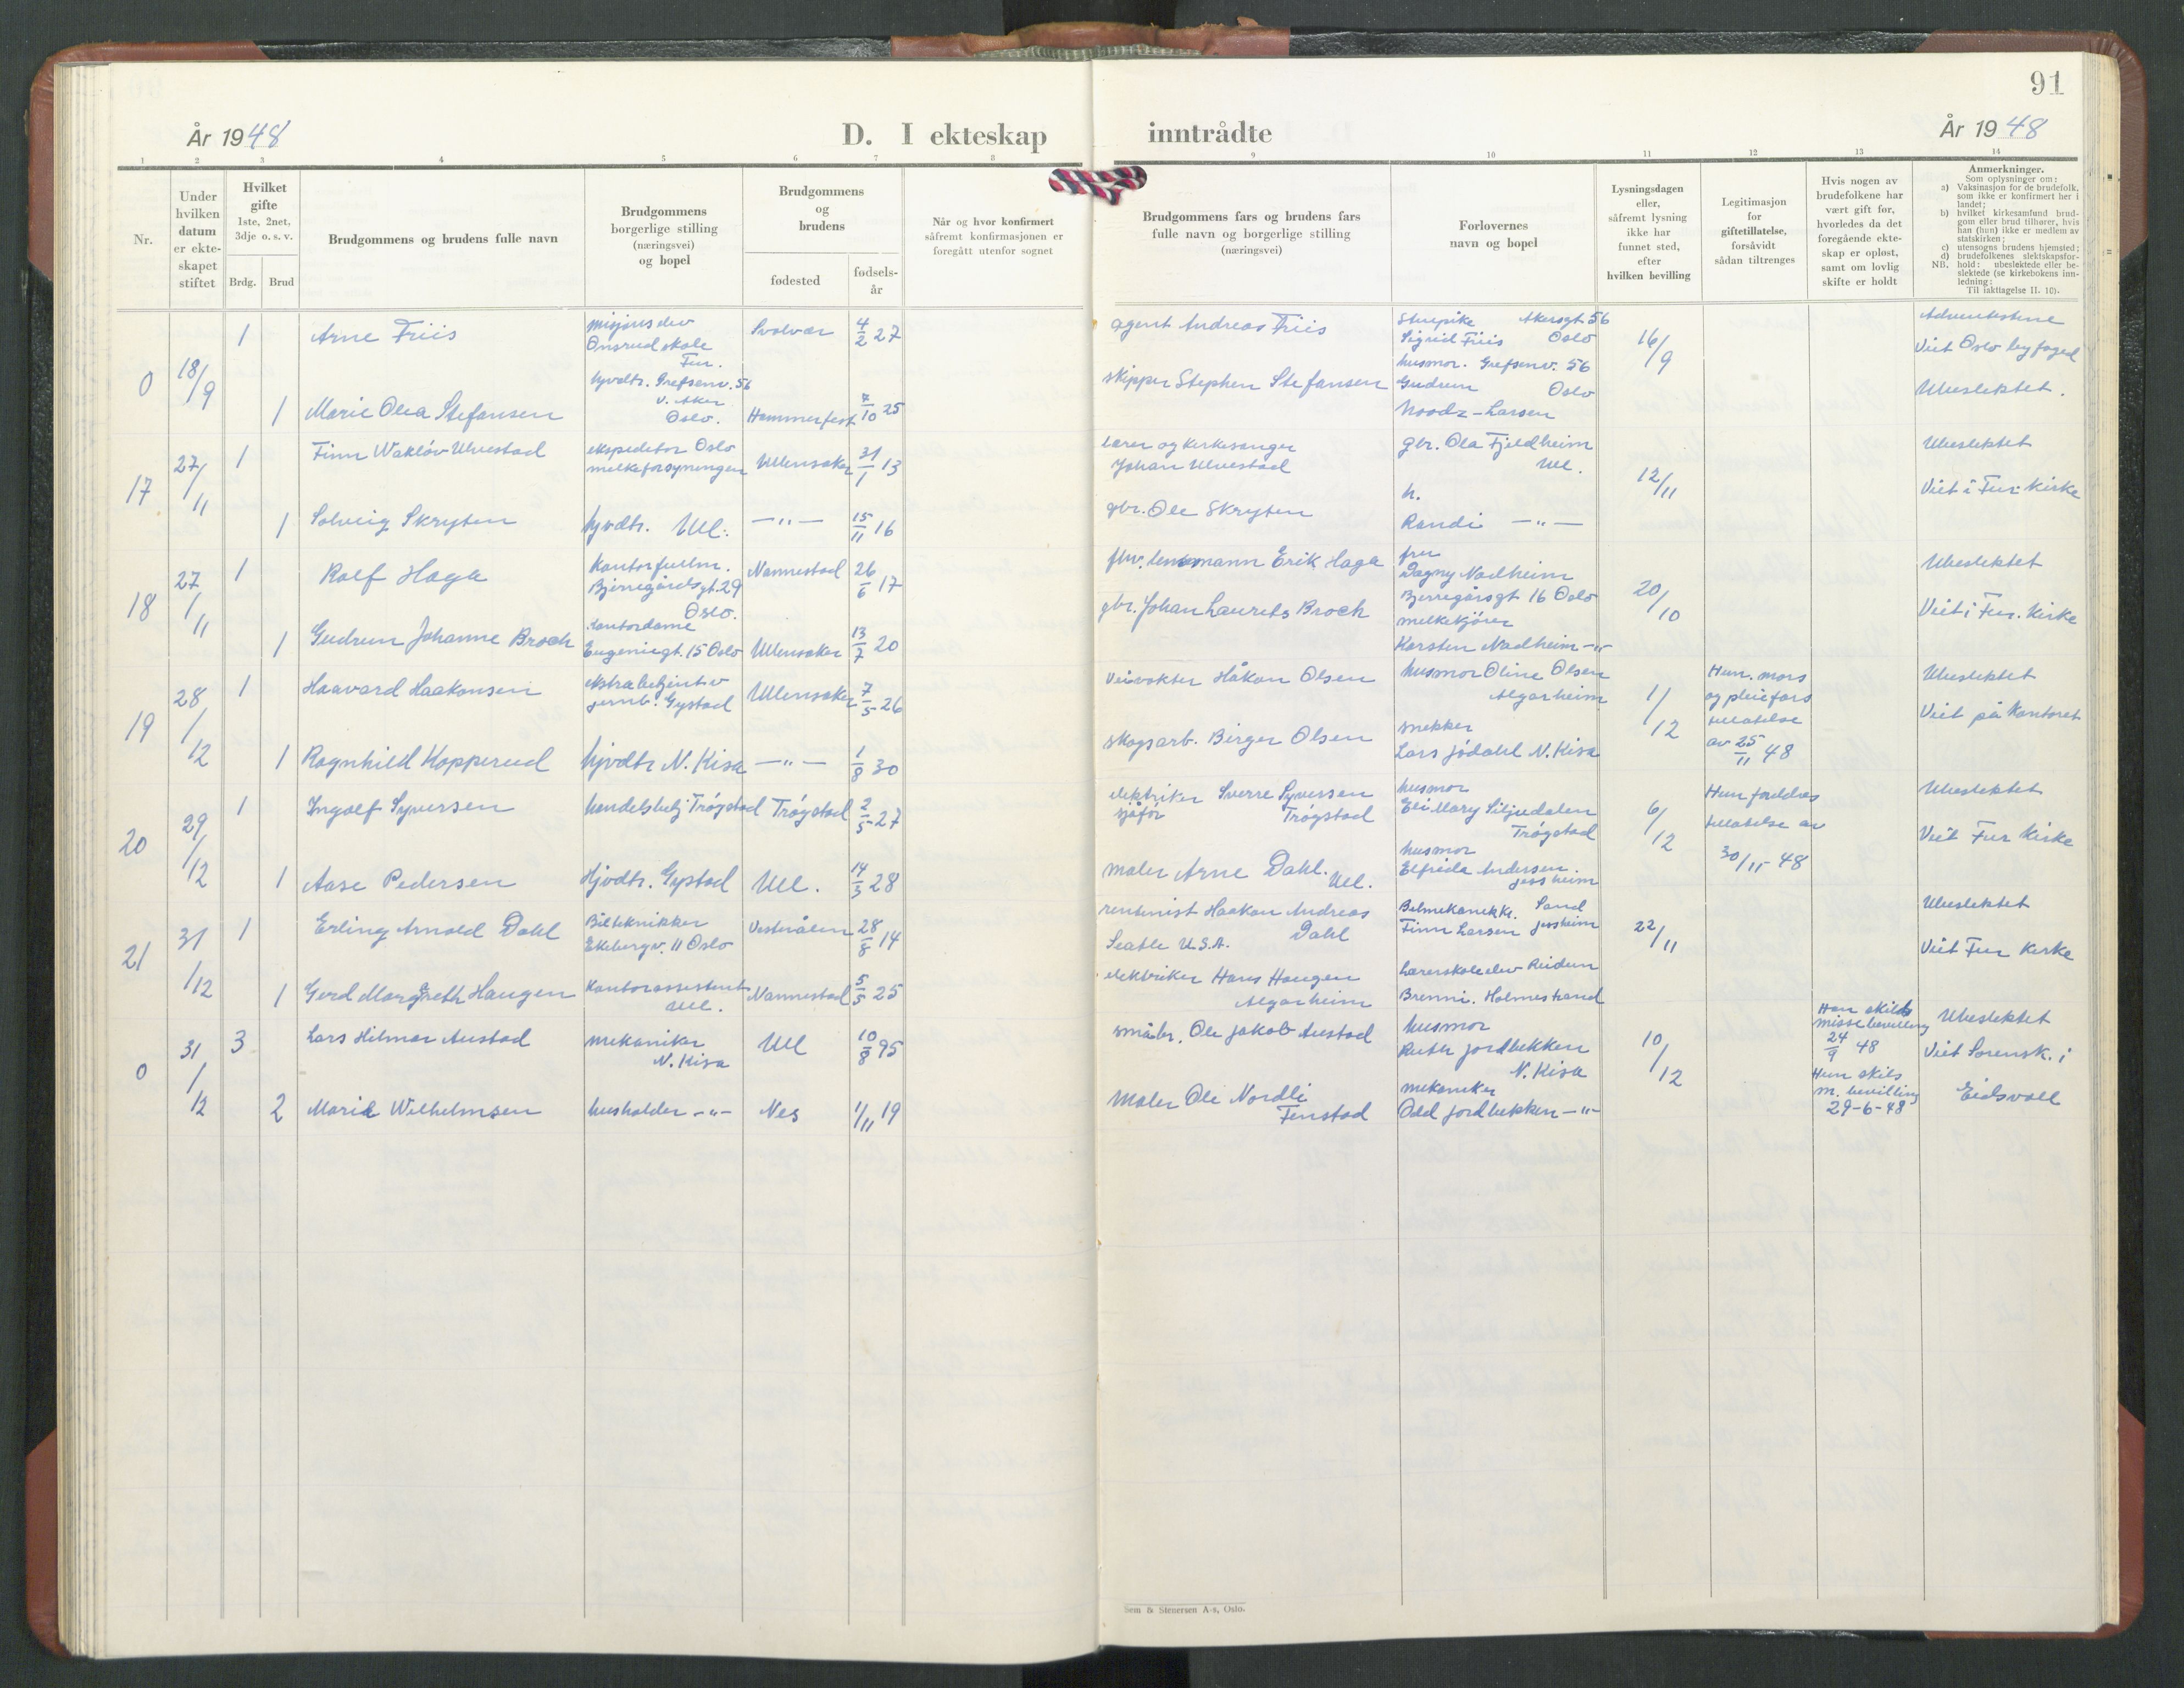 91
År 1948
D. I ekteskap
inntrådte
År 1948
1 2 3 4 5 6 7 8 9 10 11 12 13 14
Nr.
Under
hvilken
datum
er ekte-
skapet
stiftet
Hvilket
gifte
1ste, 2net,
3dje o. s. v.
Brdg. Brud
Brudgommens og brudens fulle navn
Brudgommens
borgerlige stilling
(næringsvei)
og bopel
Brudgommens
og
brudens
fødested
fødsels-
år
Når og hvor konfirmert
såfremt konfirmasjonen er
foregått utenfor sognet
Brudgommens fars og brudens fars
fulle navn og borgerlige stilling
(næringsvei)
Forlovernes
navn og bopel
Lysningsdagen
eller,
såfremt lysning
ikke har
funnet sted,
efter
hvilken bevilling
Legitimasjon
for
giftetillatelse,
forsåvidt
sådan tiltrenges
Hvis nogen av
brudefolkene har
vært gift før,
hvorledes da det
foregående ekte-
skap er opløst,
samt om lovlig
skifte er holdt
Anmerkninger.
Som oplysninger om:
a) Vaksinasjon for de brudefolk,
som ikke er konfirmert her i
landet;
b) hvilket kirkesamfund brud-
gom eller brud tilhører, hvis
han (hun) ikke er medlem av
statskirken;
c) utensogns brudens hjemsted;
d) brudefolkenes slektskapsfor-
NB. hold: ubeslektede eller be-
slektede (se kirkebokens inn-
ledning:
Til iakttagelse II. 10).
0 18/9
1 Arne Friis
misjonselev
Onsrud skole
Fur.
Svolvær 4/2 27
agent Andreas Friis
Akersgt 56
Sigrid Friis Oslo
16/9
Adventistene
Viet Oslo byfoged
1 Marie Olea Stefansen
hjvdtr. Grefsenv. 56
V. Aker
Oslo.
Hammerfest 7/10 25
skipper Stephen Stefansen
husmor. Grefsenv. 56
Gudrun Oslo
Noodz-Larsen
Ubeslektet.
17 27/11
1 Finn Wakløv Ulvestad
ekspeditør Oslo
melkeforsyningen
Ullensaker 31/1 13
lærer og kirkesanger
Johan Ulvestad
gbr. Ola Fjeldheim
Ull.
12/11
Ubeslektet
Viet i Fur. Kirke
1 Solveig Skryten
hjvdtr. Ull.
—"— 15/11 16
gbr. Ole Skryten
h.
Randi —"—
18 27/11
1 Rolf Haga
Kontorfullm.
Bjerregårdsgt. 29
Oslo.
Nannestad 26/6 17
fhv. lensmann Erik Haga
fru
Dagny Nadheim
Bjerregårsgt 16 Oslo
20/10
Ubeslektet
Viet i Fur. Kirke
1 Gudrun Johanne Broch
Kontordame
Eugeniegt. 15 Oslo
Ullensaker 13/7 20
gbr. Johan Laurets Broch
melkekjører
Karsten Nadheim —"—
19 28/12
1 Haavard Haakonsen
ekstrabetjent v
jernb. Gystad
Ullensaker 7/5 26
Veivokter Håkon Olsen
husmor Oline Olsen
Algarheim
1/12
Hun. mors
og pleiefars
tillatelse
av 25/11 48
Ubeslektet
Viet på Kontoret
1 Ragnhild Kopperud
hjvdtr N. Kisa
—"— 1/8 30
skogsarb. Birger Olsen
snekker
Lars Jødahl N. Kisa
20 29/12
1 Ingolf Syversen
handelsbetj Trøgstad
Trøgstad 2/5 27
elektriker Sverre Syversen
sjåfør Trøgstad
husmor
Eli Mary Siljudalen
Trøgstad
6/12
Hun foreldres
tillatelse av
30/11-48
Ubeslektet
Viet Fur Kirke
1 Aase Pedersen
Hjvdtr. Gystad
Ull. 14/3 28
maler Arne Dahl.
Ull.
husmor
Elfrida Andersen.
Jessheim
21 31/12
1 Erling Arnold Dahl
Bilteknikker
Ekebergv. 11 Oslo
Vesterålen 28/8 14
rentenist Haakon Andreas
Seatle U.S.A. Dahl
Bilmekanikk. Sand
Finn Larsen Jessheim
22/11
Ubeslektet
Viet Fur Kirke
1 Gerd Margreth Haugen
Kontorassistent
Ull.
Nannestad 5/5 25
elektriker Hans Haugen
Algarheim
Lærerskoleelev Reidun
Brenni. Holmestrand
0 31/12
3 Lars Hilmar Austad
mekaniker
N. Kisa
Ull 10/8 95
småbr. Ole Jakob Austad
husmor
Ruth Jordbekken
N. Kisa
10/12
Han skilt
misse bevilling
24/9 48
Ubeslektet
Viet Sorensk. i
Eidsvoll
2 Marie Wilhelmsen
husholder —"—
Nes 1/11 19
Maler Ole Nordli
Fenstad
mekaniker
Odd Jordbekken —"—
Hun skils
m. bevilling
29-6-48
Sem & Stenersen A-s, Oslo.